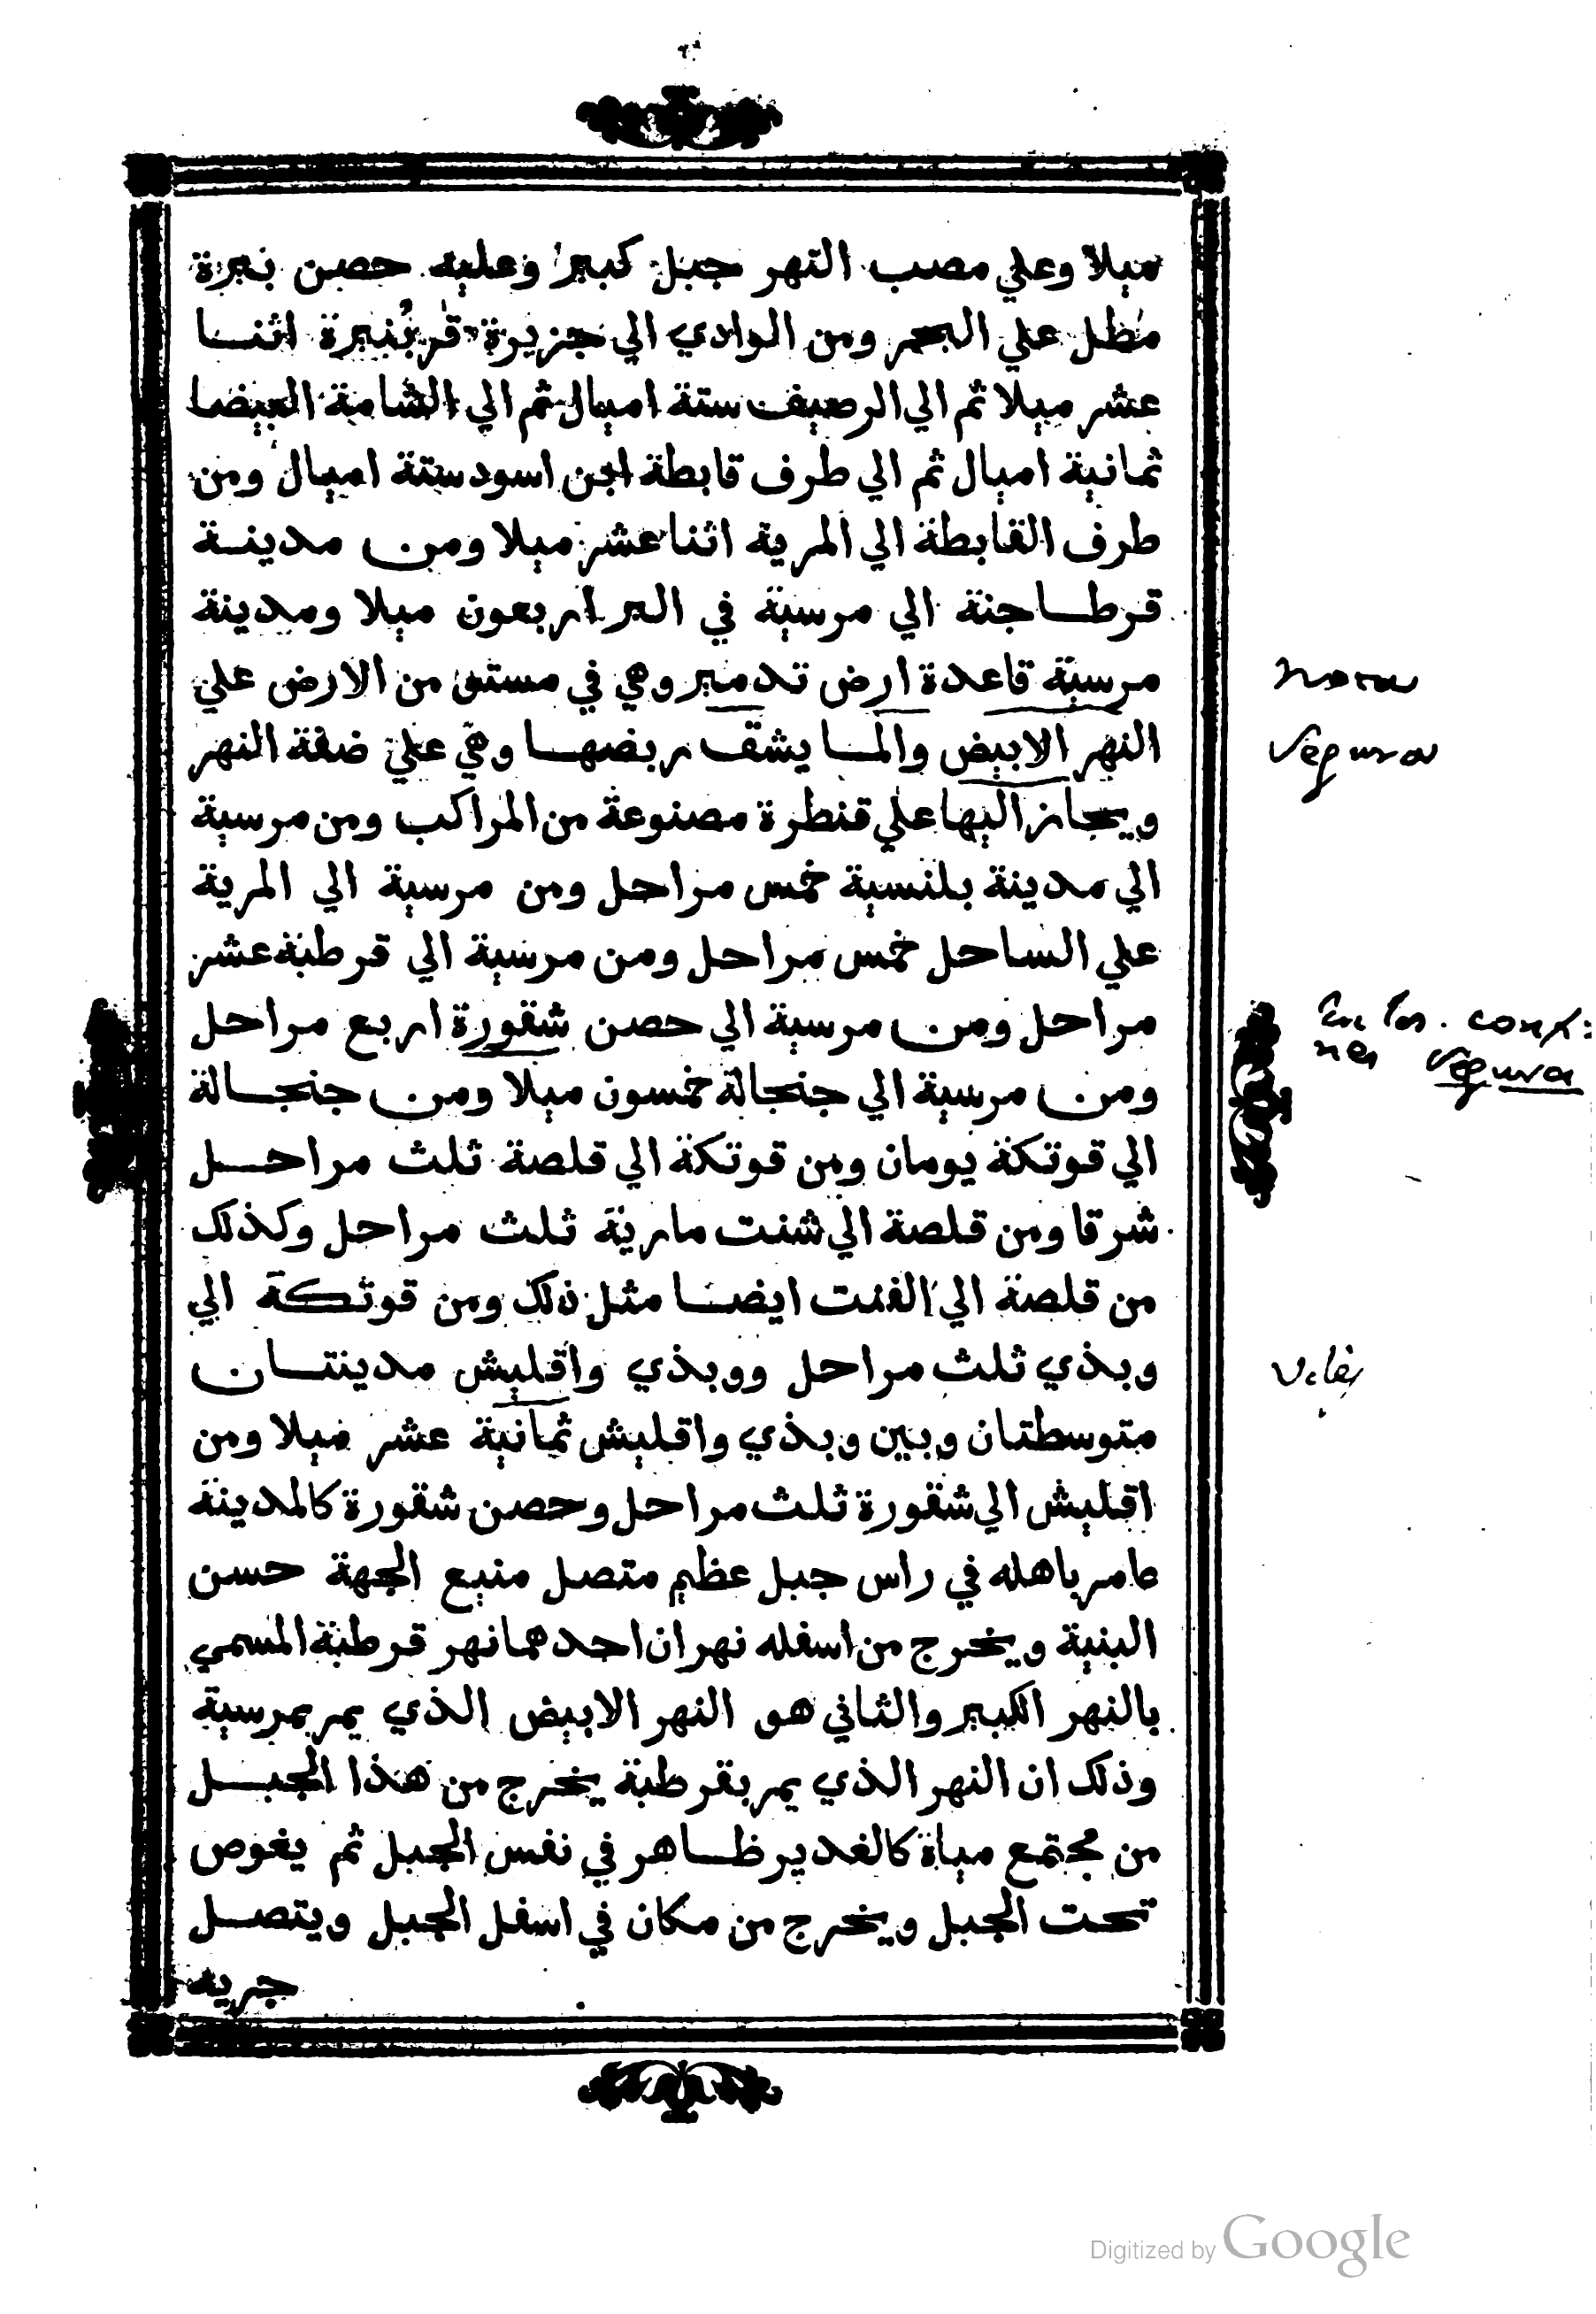 ميلا وعلي مصب النهر جبل كبير وعليه حصن نبيرة
مطل علي البحر ومن الوادي الي جزيرة قربنيرة اثنا
عشر ميلا ثم الي الرصيف ستة اميال ثم الي الشامة البيضا
ثمانية اميال ثم الي طرف قابطة ابن اسود ستة اميال ومن
طرف القابطة الي المرية اثنا عشر ميلا ومن مدينة
قرطاجنة الي مرسية في البر اربعون ميلا ومدينة
مرسية قاعدة ارض تدمير وهي في مستو من الارض علي
النهر الابيض والما يشق ربضها وهي علي ضفة النهر
ويجاز اليها علي قنطرة مصنوعة من المراكب ومن مرسية
الي مدينة بلنسية خمس مراحل ومن مرسية الي المرية
علي الساحل خمس مراحل ومن مرسية الي قرطبة عشر
مراحل ومن مرسية الي حصن شقورة اربع مراحل
ومن مرسية الي جنجالة خمسون ميلا ومن جنجالة
الي قوتكة يومان ومن قوتكة الي قلصة ثلث مراحل
شرقا ومن قلصة الي شنت مارية ثلث مراحل وكذلك
من قلصة الي الفنت ايضا مثل ذلك ومن قوتكة الي
وبذي ثلث مراحل ووبذي واقليش مدينتان
متوسطتان وبين وبذي واقليش ثمانية عشر ميلا ومن
اقليش الي شقورة ثلث مراحل وحصن شقورة كالمدينة
عامر باهله في راس جبل عظيم متصل منيع الجهة حسن
البنية ويخرج من اسفله نهران احدهما نهر قرطبة المسمي
بالنهر الكبير والثاني هو النهر الابيض الذي يمر بمرسية
وذلك ان النهر الذي يمر بقرطبة يخرج من هذا الجبل
من مجتمع مياة كالغدير ظاهر في نفس الجبل ثم يغوص
تحت الجبل ويخرج من مكان في اسفل الجبل ويتصل
جريه
Segura
Segura
Digitized by Google